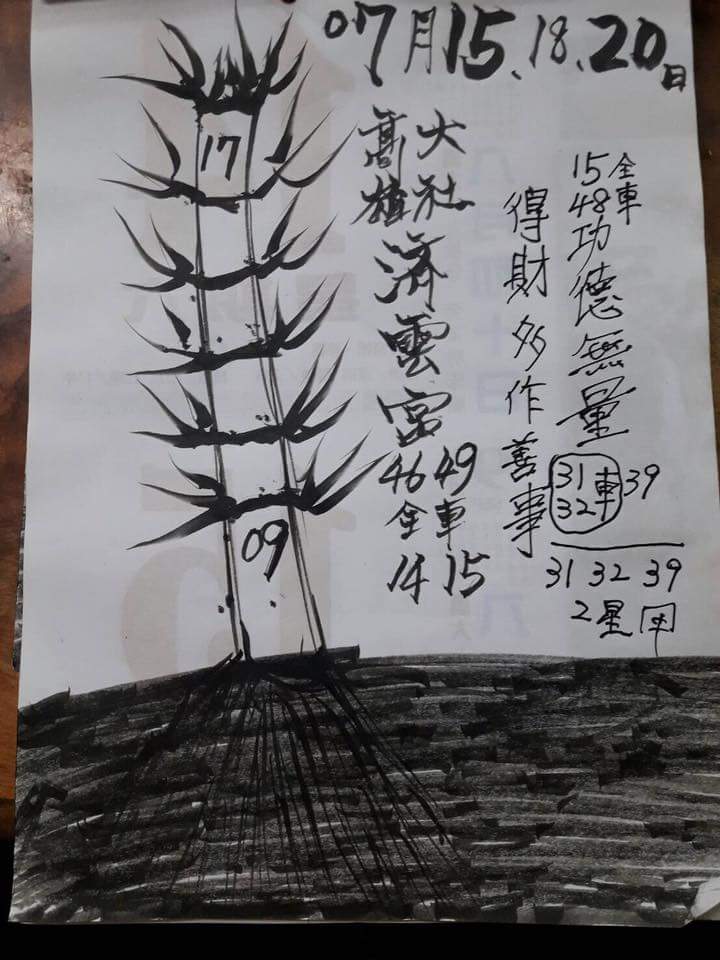 07月15、18、20日
全車
1548功德無量
31
32
車39
31 32 39
2星
得財多作善事
大社
高雄
濟雲宮
46 49
全車
14 15
17
09